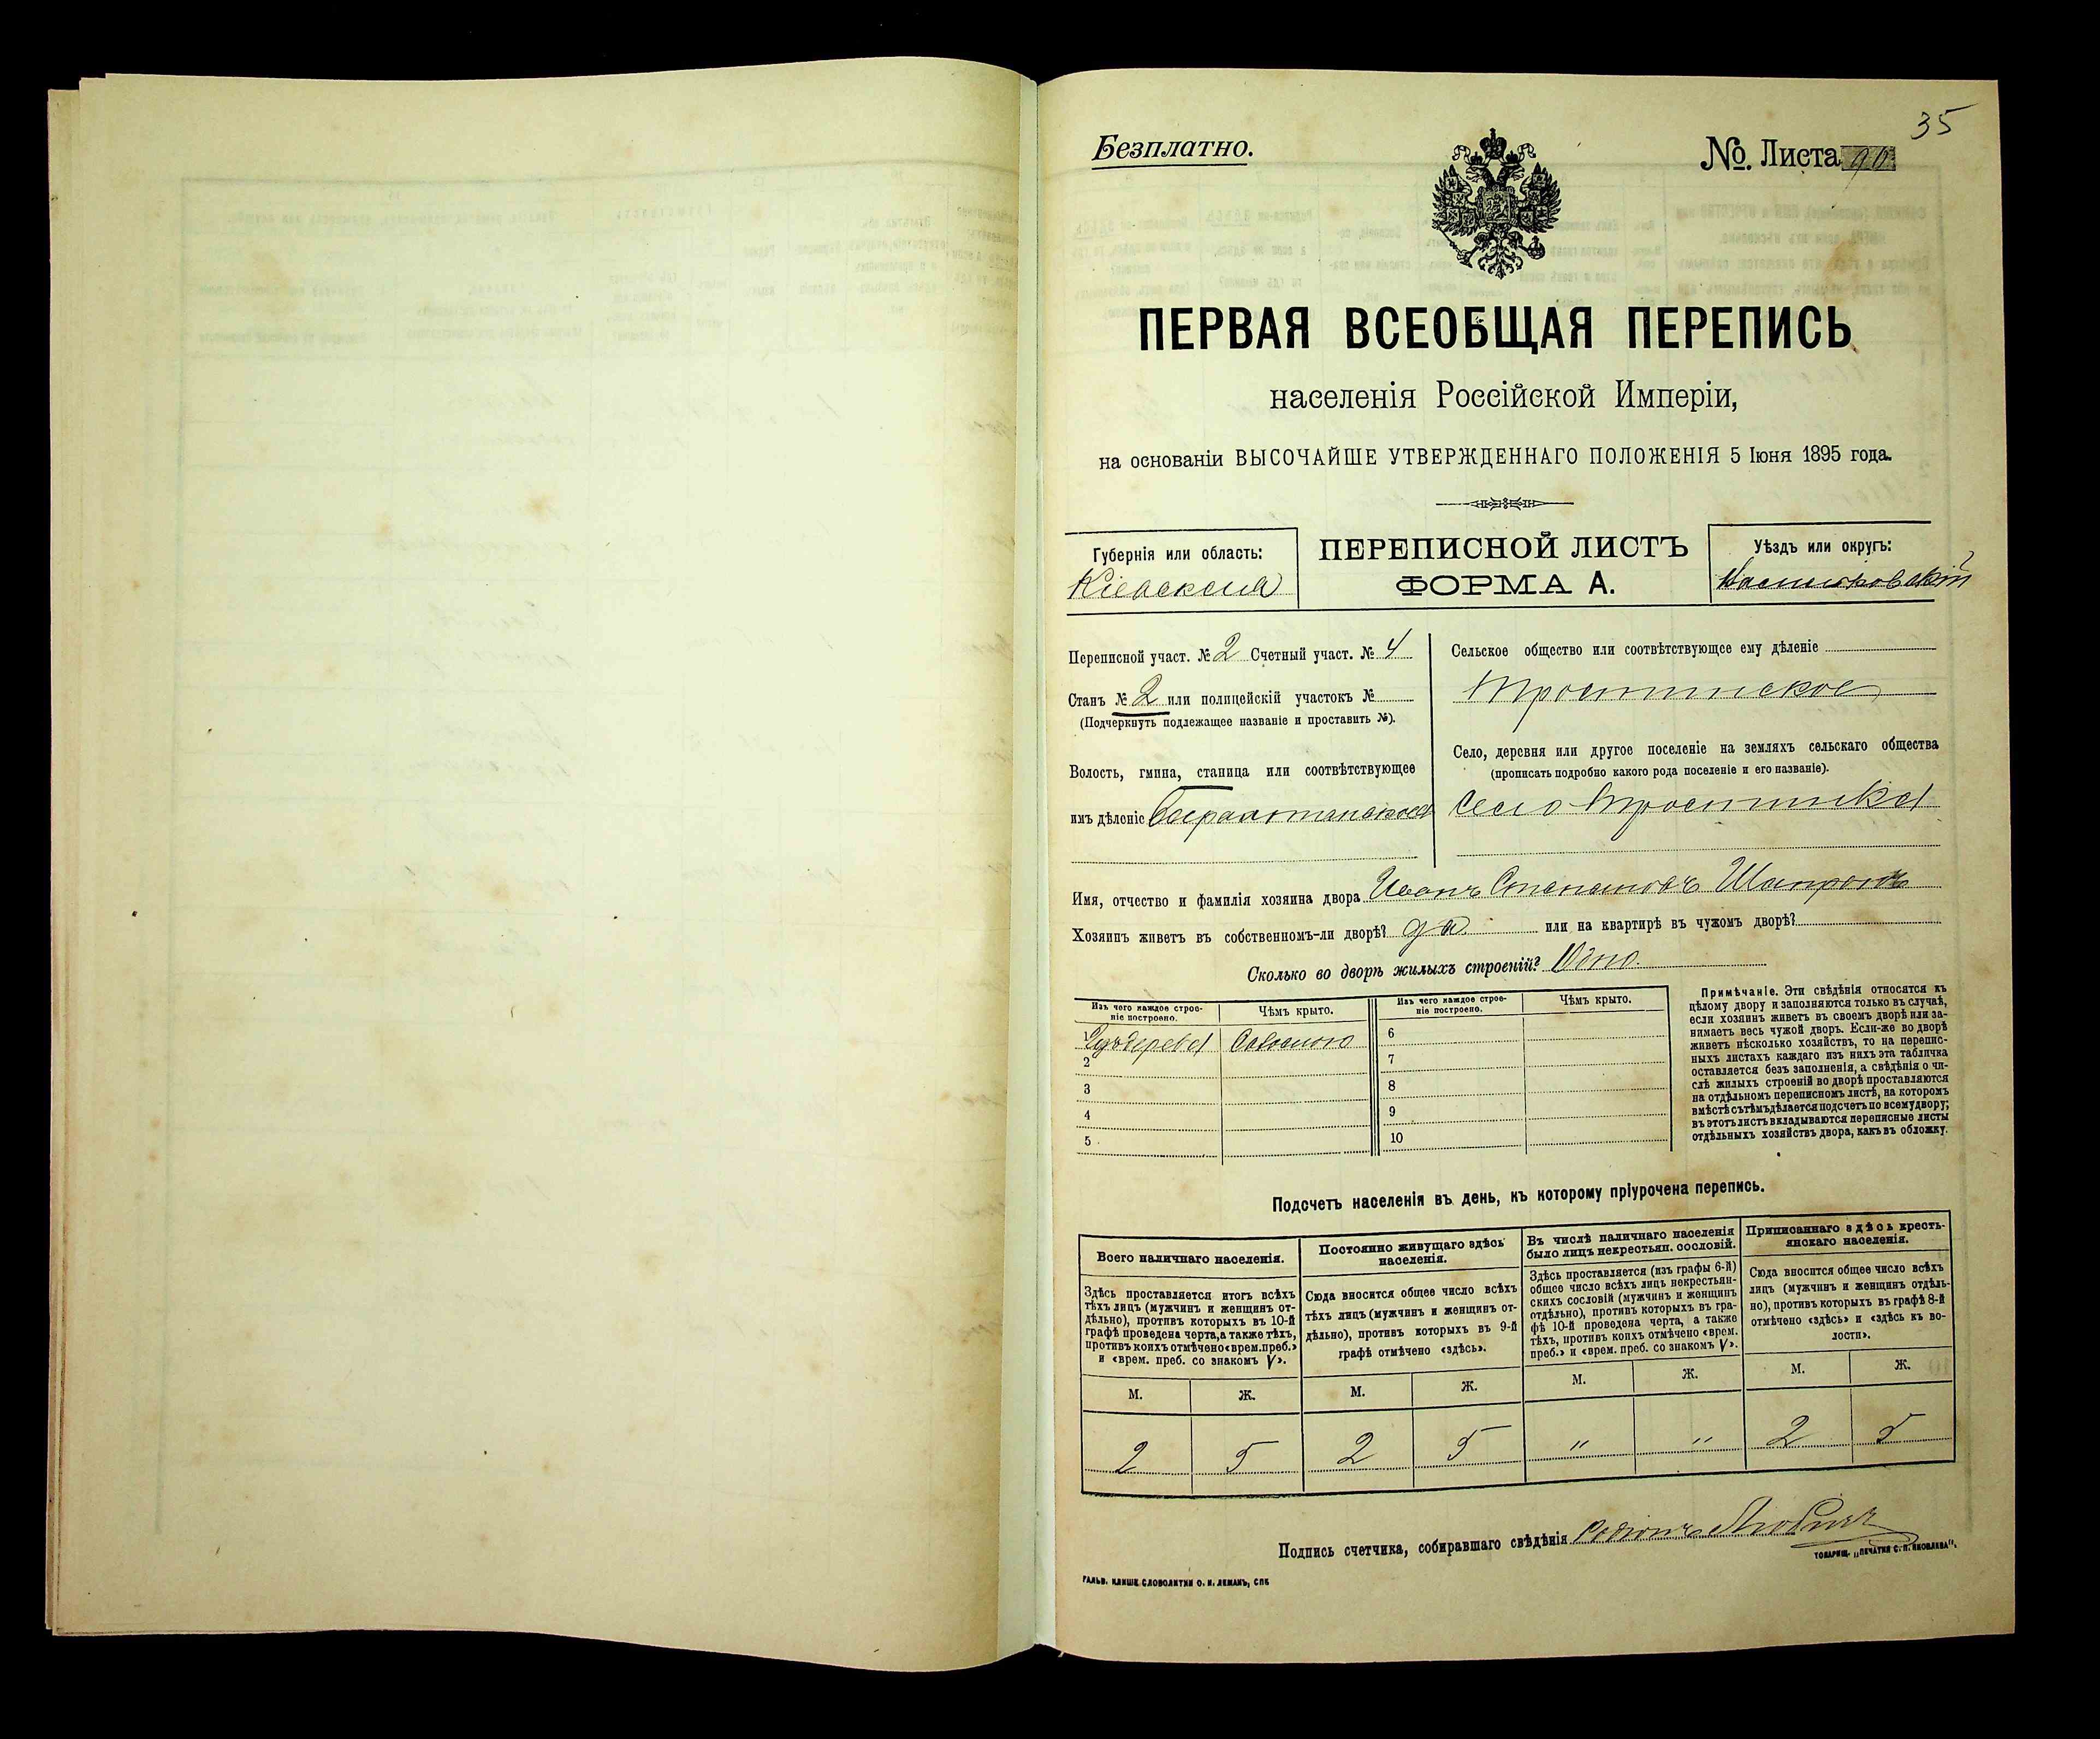 35
Безплатно.
№. Листа 90
ПЕРВАЯ ВСЕОБЩАЯ ПЕРЕПИСЬ
населенія Россійской Имперіи,
на основаніи ВЫСОЧАЙШЕ УТВЕРЖДЕННАГО ПОЛОЖЕНІЯ 5 Іюня 1895 года.
Губернія или область:
Кіевская
ПЕРЕПИСНОЙ ЛИСТЪ
ФОРМА А.
Уѣздъ или округъ:
Васильковскій
Переписной участ. № 2 Счетный участ. № 4
Станъ № 2 или полицейскій участокъ №
(Подчеркнуть подлежащее названіе и проставить №).
Волость, гмина, станица или соотвѣтствующее
имъ дѣленіе
Сельское общество или соотвѣтствующее ему дѣленіе
Тростинское
Село, деревня или другое поселеніе на земляхъ сельскаго общества
(прописать подробно какого рода поселеніе и его названіе).
Село Тростинка
Имя, отчество и фамилія хозяина двора Иванъ Степановъ
Хозяинъ живетъ въ собственномъ-ли дворѣ? да или на квартирѣ въ чужомъ дворѣ?
Сколько во дворѣ жилыхъ строеній? Одно.
Изъ чего каждое строе-
ніе построено.
Чѣмъ крыто.
Изъ чего каждое строе-
ніе построено.
Чѣмъ крыто.
1 Изъ дерева Соломою
2
3
4
5
6
7
8
9
10
Примѣчаніе. Эти свѣдѣнія относятся къ
цѣлому двору и заполняются только въ случаѣ,
если хозяинъ живетъ въ своемъ дворѣ или за-
нимаетъ весь чужой дворъ. Если-же во дворѣ
живетъ нѣсколько хозяйствъ, то на перепис-
ныхъ листахъ каждаго изъ нихъ эта табличка
оставляется безъ заполненія, а свѣдѣнія о чи-
слѣ жилыхъ строеній во дворѣ проставляются
на отдѣльномъ переписномъ листѣ, на которомъ
вмѣстѣ съ тѣмъ дѣлается подсчетъ по всему двору;
въ этотъ листъ вкладываются переписные листы
отдѣльныхъ хозяйствъ двора, какъ въ обложку.
Подсчетъ населенія въ день, къ которому пріурочена перепись.
Всего наличнаго населенія.
Здѣсь проставляется итогъ всѣхъ
тѣхъ лицъ (мужчинъ и женщинъ от-
дѣльно), противъ которыхъ въ 10-й
графѣ проведена черта, а также тѣхъ,
противъ коихъ отмѣчено «врем. преб.»
и «врем. преб. со знакомъ V».
Постоянно живущаго здѣсь
населенія.
Сюда вносится общее число всѣхъ
тѣхъ лицъ (мужчинъ и женщинъ от-
дѣльно), противъ которыхъ въ 9-й
графѣ отмѣчено «здѣсь».
Въ числѣ наличнаго населенія
было лицъ некрестьян. сословій.
Здѣсь проставляется (изъ графы 6-й)
общее число всѣхъ лицъ некрестьян-
скихъ сословій (мужчинъ и женщинъ
отдѣльно), противъ которыхъ въ гра-
фѣ 10-й проведена черта, а также
тѣхъ, противъ коихъ отмѣчено «врем.
преб.» и «врем. преб. со знакомъ V».
Приписаннаго здѣсь кресть-
янскаго населенія.
Сюда вносится общее число всѣхъ
лицъ (мужчинъ и женщинъ отдѣль-
но), противъ которыхъ въ графѣ 8-й
отмѣчено «здѣсь» и «здѣсь къ во-
лости».
М. Ж. М. Ж. М. Ж. М. Ж.
2 5 2 5 " " 2 5
Подпись счетчика, собиравшаго свѣдѣнія Родіонъ
ТОВАРИЩ. „ПЕЧАТНЯ С. П. ЯКОВЛЕВА".
ГАЛЬВ. КЛИШЕ СЛОВОЛИТНИ О. И. ЛЕМАНЪ, СПБ